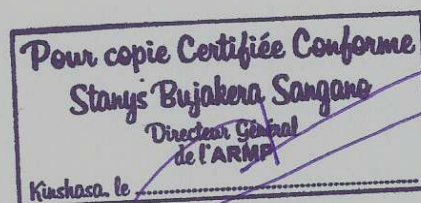 Pour copie Certifiée Conforme
Stanys Bujakera Sangano
Directeur Général
de l'ARMP
Kinshasa, le ........................................